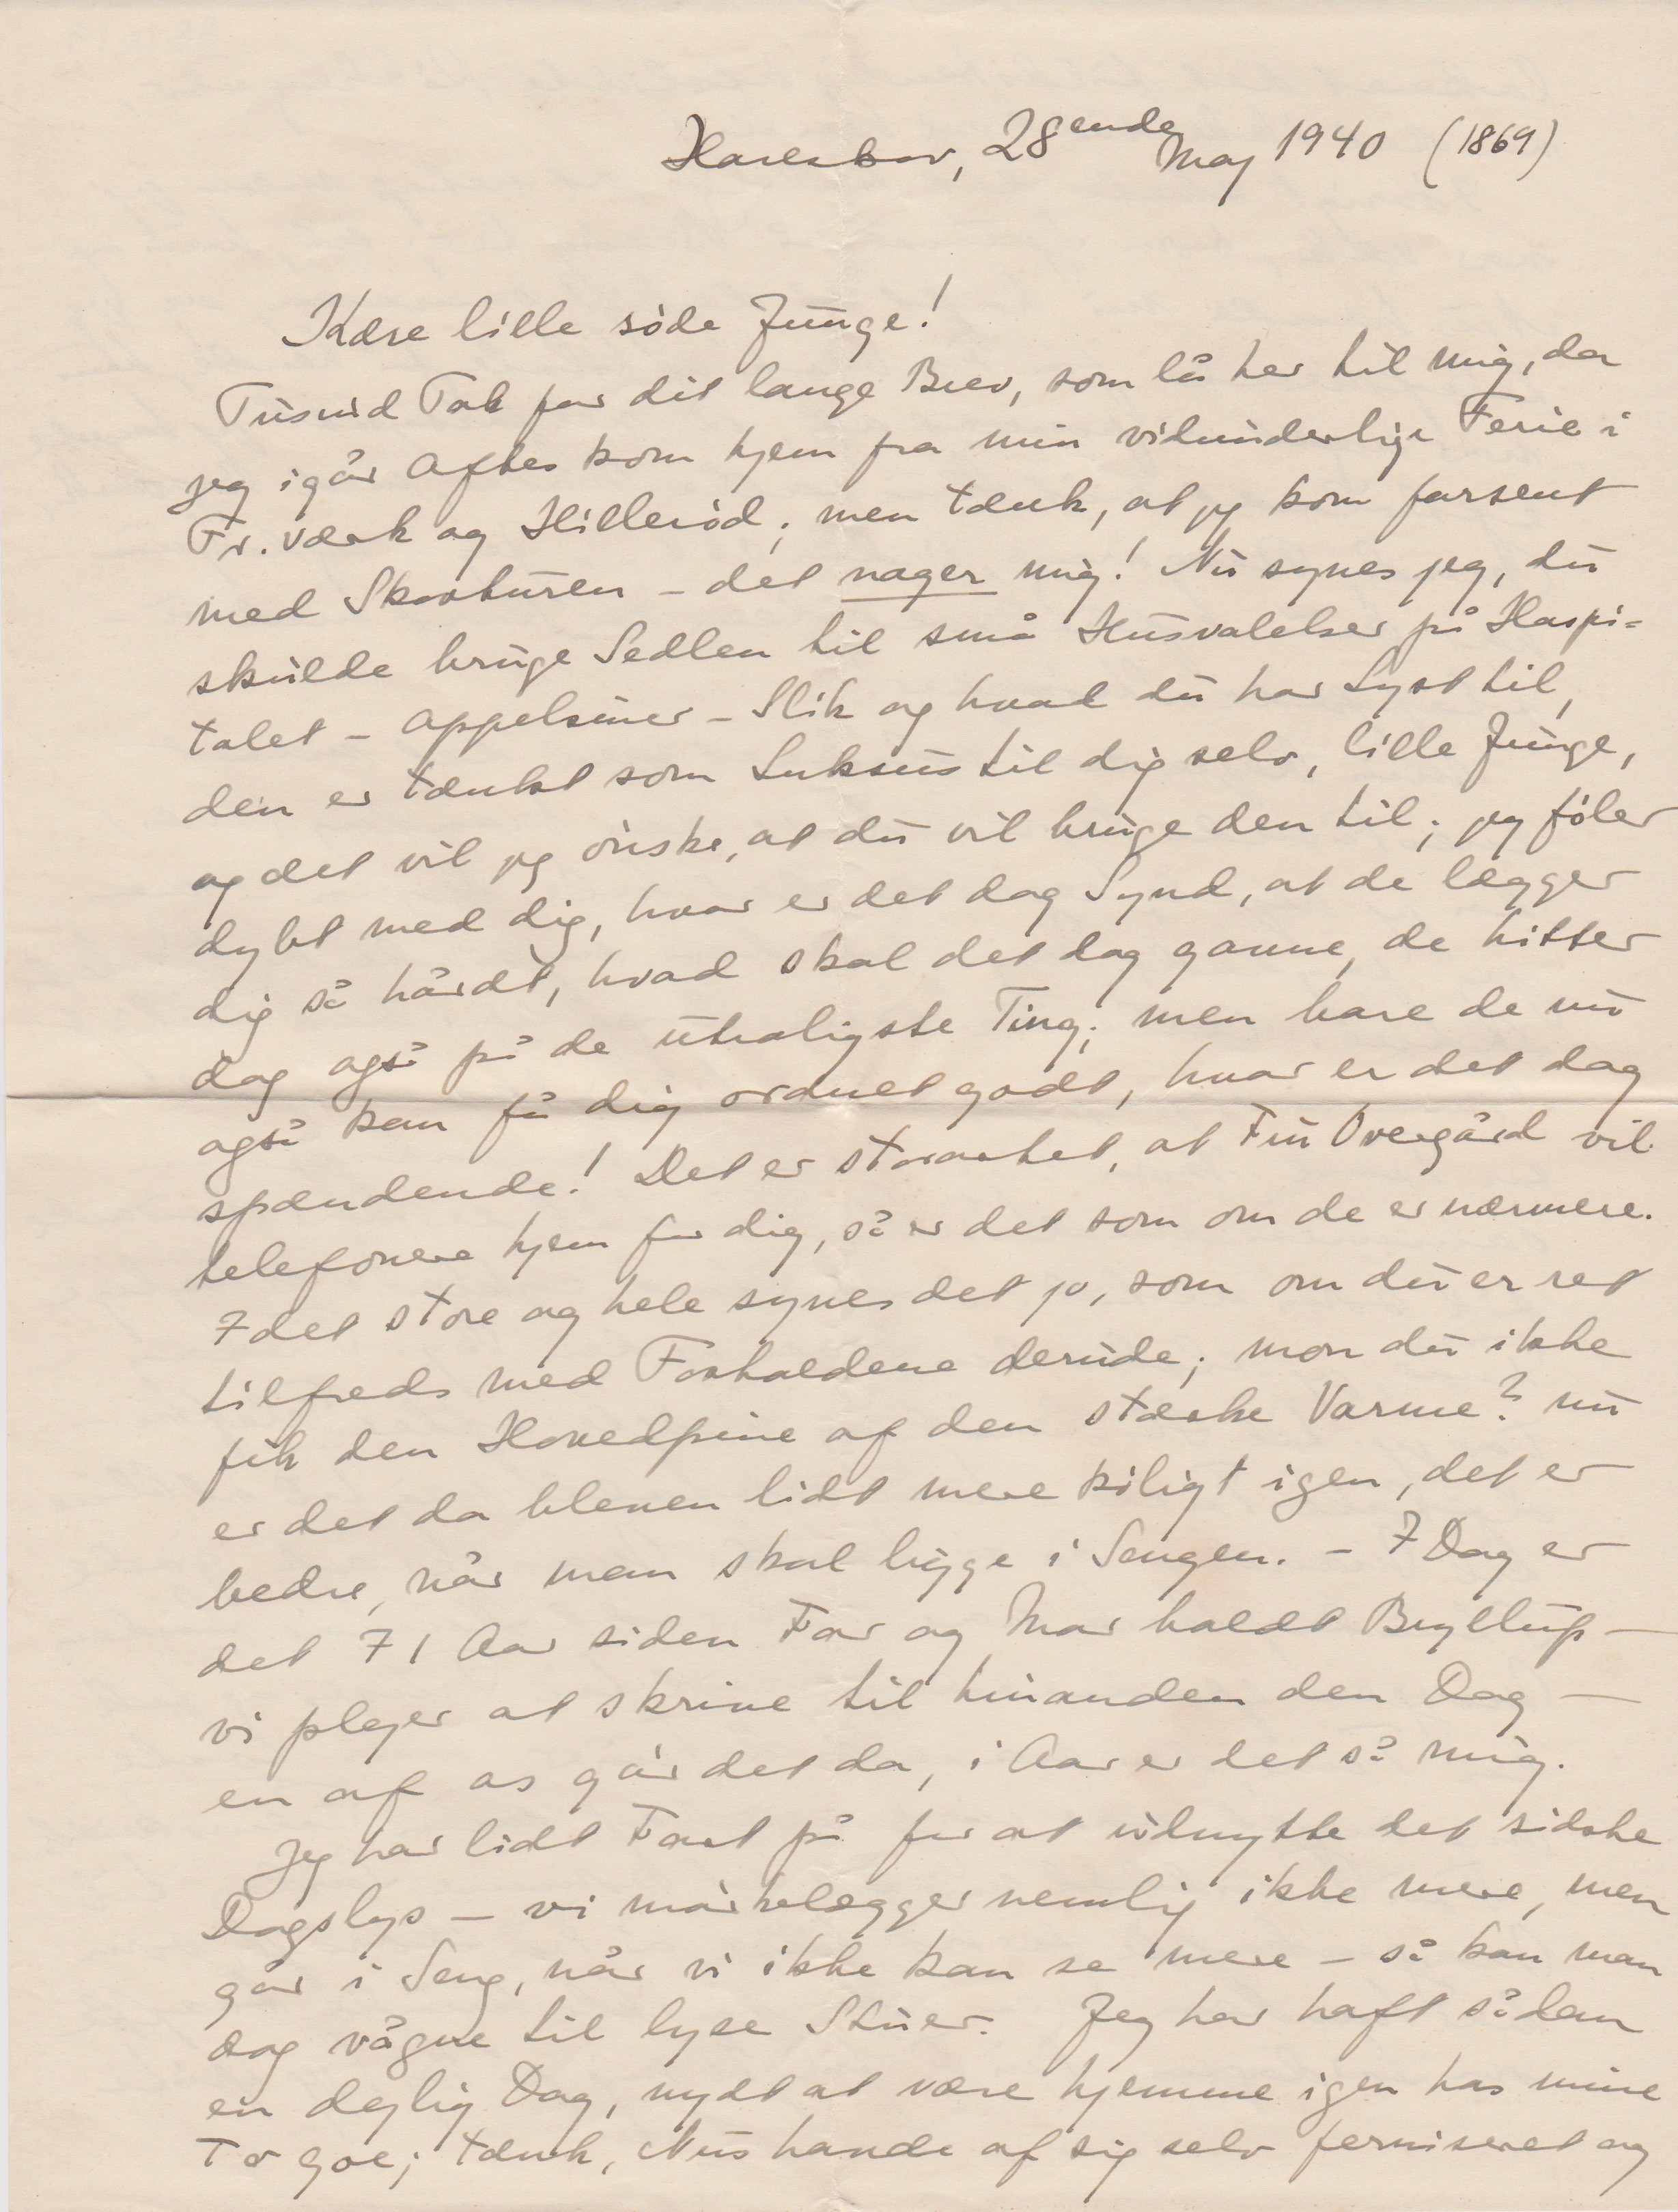 Hareskov, 28ende Maj 1940 (1869)
Kære lille söde Junge!
Tusind Tak for dit lange Brev, som lå her til mig, da
jeg igår Aftes kom hjem fra min vidunderlige Ferie i
Fr. værk og Hilleröd; men tænk, at jeg kom forsent
med Skovturen - det nager mig! Nu synes jeg, du
skulde bruge Sedlen til små Husvalelser på Hospi=
talet - Appelsiner - Slik og hvad du har Lyst til,
den er tænkt som Luksus til dig selv, lille Junge,
og det vil jeg önske, at du vil bruge den til; jeg föler
dybt med dig, hvor er det dog Synd, at de lægger
dig så hårdt, hvad skal det dog gavne, de hitter
dog også på de utroligste Ting; men bare de nu
også kan få dig ordnet godt, hvor er det dog
spændende! Det er storartet, at Fru Overgård vil
telefonere hjem for dig, så er det som om de er nærmere.
I det store og hele synes det jo, som om du er ret
tilfreds med Forholdene derude; mon du ikke
fik den Hovedpine af den stærke Varme? nu
er det da bleven lidt mere køligt igen, det er
bedre, når man skal ligge i Sengen. - I Dag er
det 71 Aar siden Far og Mor holdt Bryllup -
vi plejer at skrive til hinanden den Dag -
en af os gör det da, i Aar er det så mig.
Jeg har lidt Fart på for at udnytte det sidste
Dagslys - vi mörkelægger nemlig ikke mere, men
går i Seng, når vi ikke kan se mere - så kan man
dog vågne til lyse Stuer. Jeg har haft sådan
en dejlig Dag, nydt at være hjemme igen hos mine
to goe; tænk, Nus havde af sig selv ferniseret og